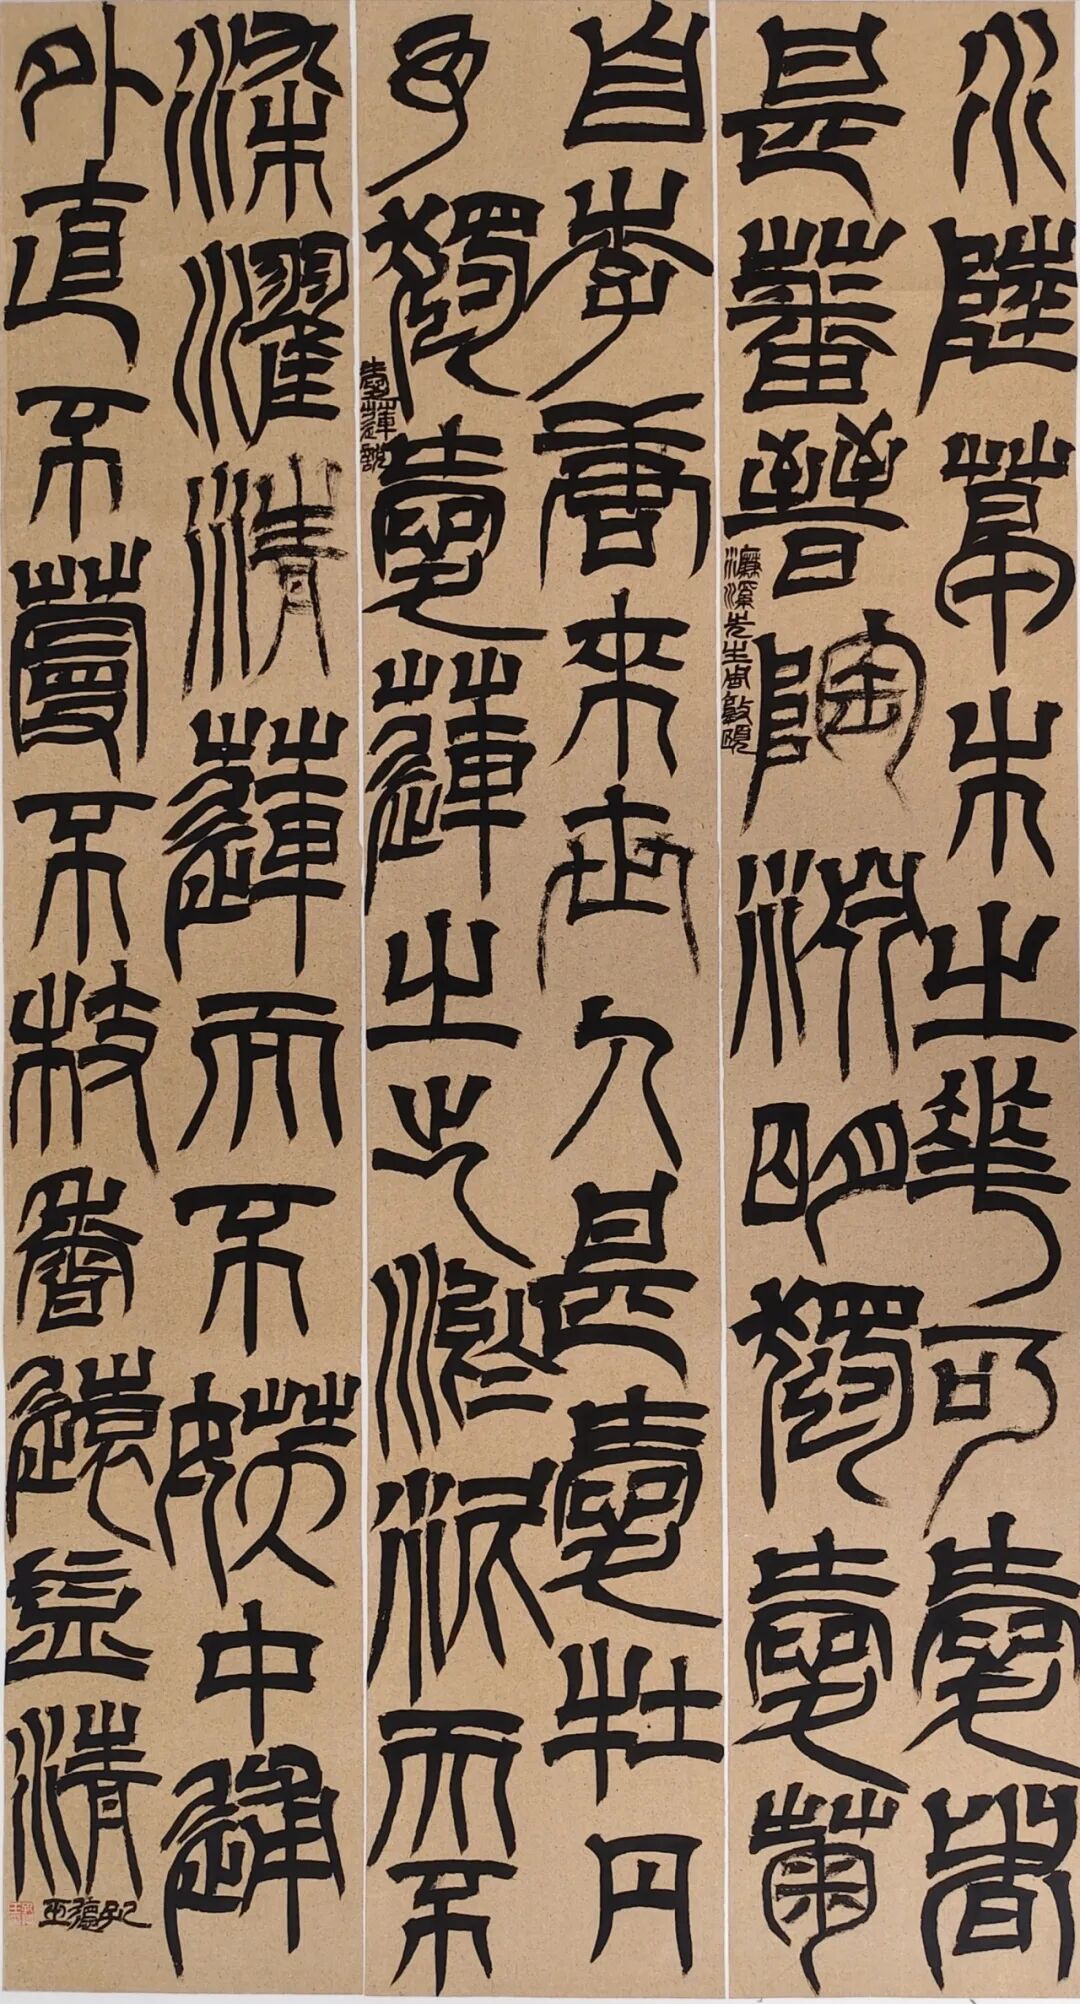 水陸草木之華可愛者
甚蕃晉陶淵明獨愛菊
濂溪先生周敦頤
自李唐來世人甚愛牡丹
予獨愛蓮之出淤泥而不
愛蓮說
染濯清蓮而不妖中通
外直不蔓不枝香遠益清